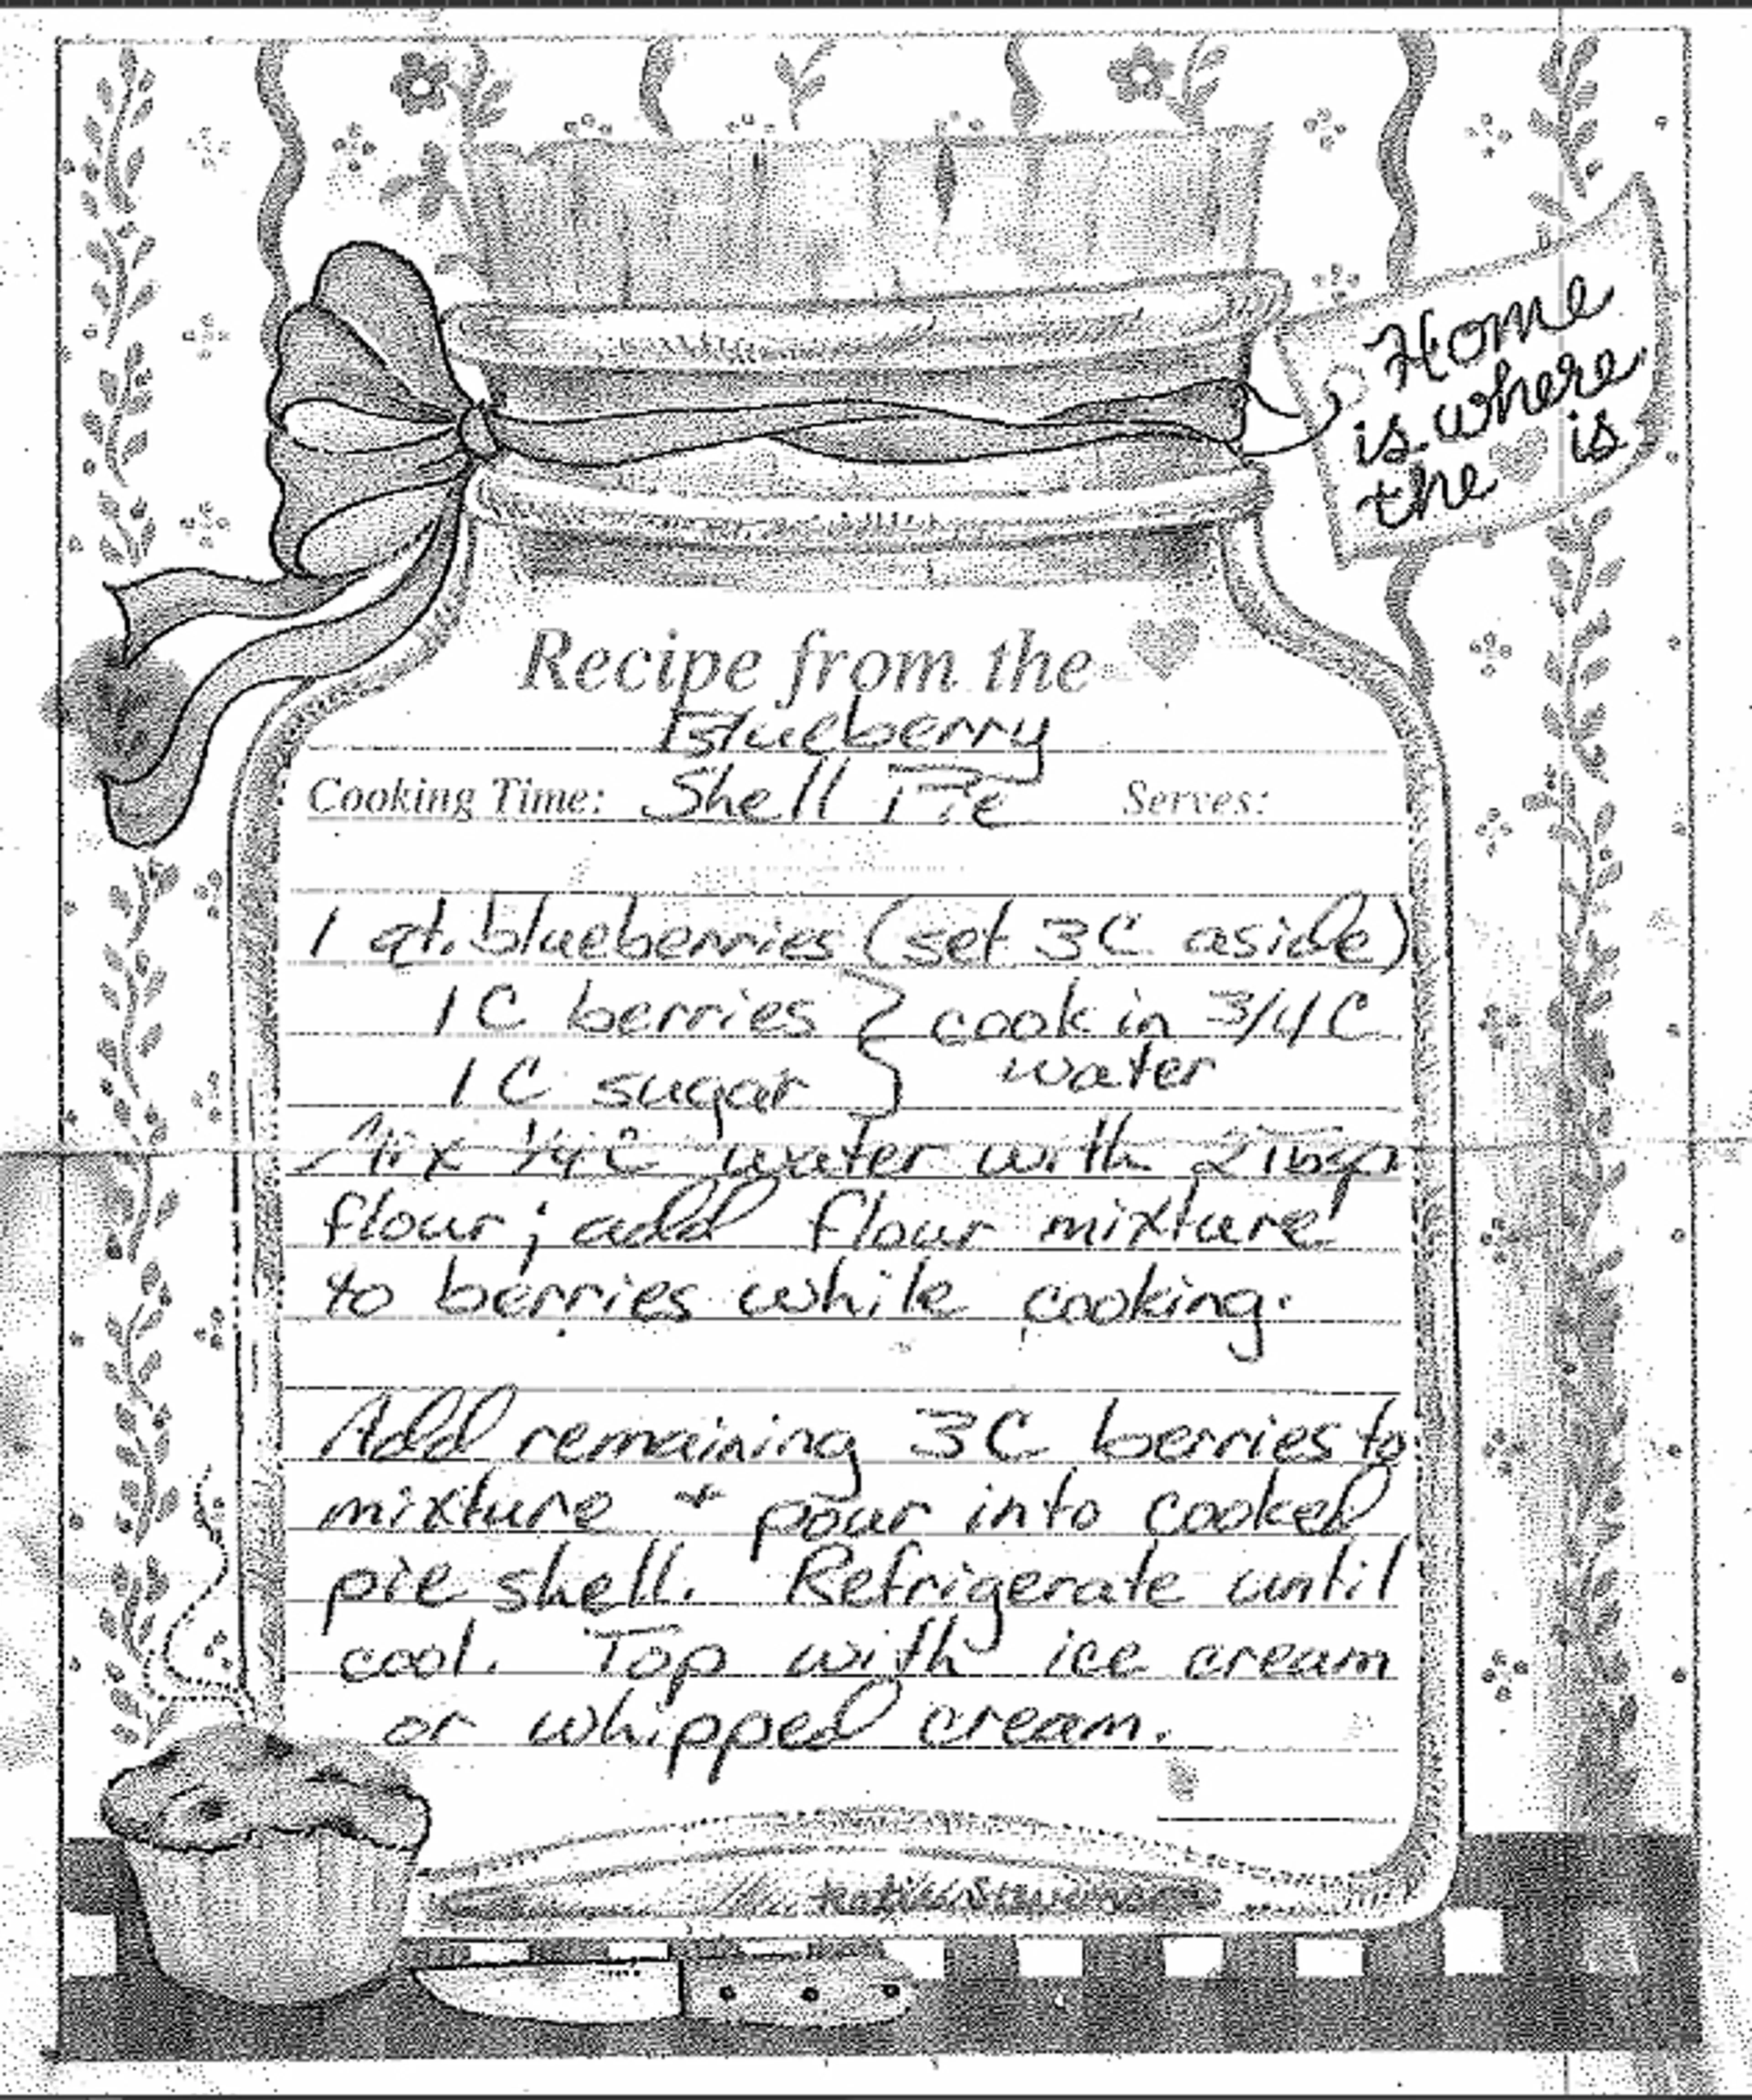 Home
is where
the is
Recipe from the
Blueberry
Cooking Time: Shell Pie Serves:
1 qt. blueberries (set 3C aside)
1 C berries } cook in 3/4 C
1 C sugar } water
Mix 1/4 C water with 2 Tbsp
flour; add flour mixture
to berries while cooking.
Add remaining 3C berries to
mixture + pour into cooked
pie shell. Refrigerate until
cool. Top with ice cream
or whipped cream.